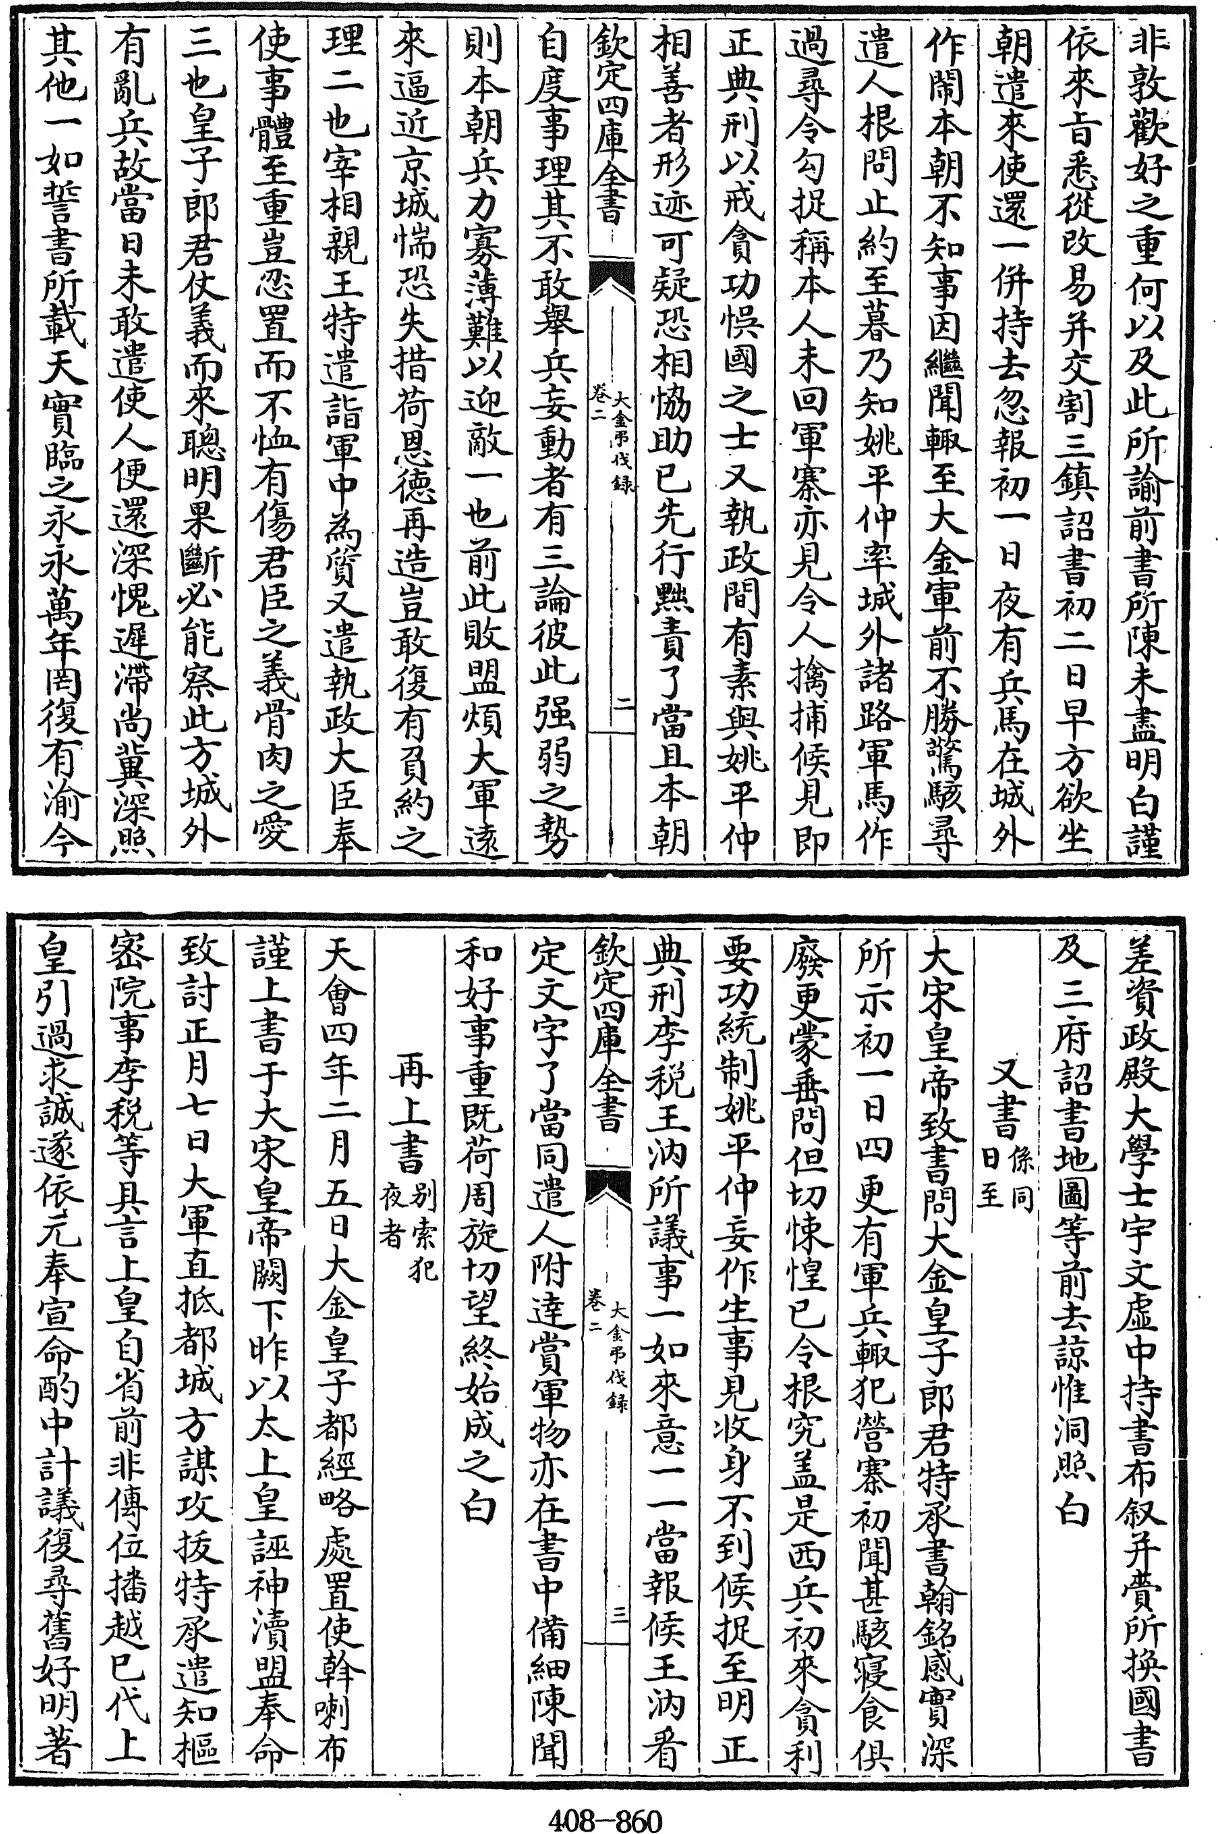 非敦歡好之重何以及此所諭前書所陳未盡明白謹
依來旨悉從改易并交割三鎮詔書初二日早方欲坐
朝遣來使還一併持去忽報初一日夜有兵馬在城外
作鬧本朝不知事因繼聞輙至大金軍前不勝驚駭尋
遣人根問止約至暮乃知姚平仲率城外諸路軍馬作
過尋令勾捉稱本人未回軍寨亦見令人擒捕候見即
正典刑以戒貪功悞國之士又執政間有素與姚平仲
相善者形迹可疑恐相恊助已先行黜責了當且本朝
欽定四庫全書
大金弔伐録
卷二
二
自度事理其不敢舉兵妄動者有三論彼此强弱之勢
則本朝兵力寡薄難以迎敵一也前此敗盟煩大軍遠
來逼近京城惴恐失措荷恩德再造豈敢復有負約之
理二也宰相親王特遣詣軍中為質又遣執政大臣奉
使事體至重豈忍置而不恤有傷君臣之義骨肉之愛
三也皇子郎君仗義而來聰明果斷必能察此方城外
有亂兵故當日未敢遣使人便還深愧遲滯尚冀深照
其他一如誓書所載天實臨之永永萬年罔復有渝今
差資政殿大學士宇文虚中持書布叙并賫所換國書
及三府詔書地圖等前去諒惟洞照白
又書係同日至
大宋皇帝致書問大金皇子郎君特承書翰銘感實深
所示初一日四更有軍兵輙犯營寨初聞甚駭寢食俱
廢更蒙垂問但切悚惶已令根究盖是西兵初來貪利
要功統制姚平仲妄作生事見收身不到候捉至明正
典刑李梲王汭所議事一如來意一一當報候王汭看
欽定四庫全書
大金弔伐録
卷二
三
定文字了當同遣人附達賞軍物亦在書中備細陳聞
和好事重既荷周旋切望終始成之白
再上書别索犯夜者
天會四年二月五日大金皇子都經略處置使斡喇布
謹上書于大宋皇帝闕下昨以太上皇誣神瀆盟奉命
致討正月七日大軍直抵都城方謀攻拔特承遣知樞
密院事李梲等具言上皇自省前非傳位播越已代上
皇引過求誠遂依元奉宣命酌中計議復尋舊好明著
408-860